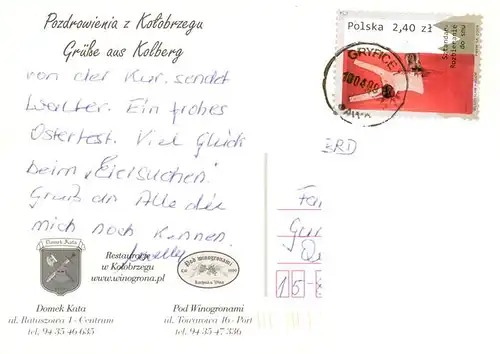 Pozdrowienia z Kołobrzegu
Grüße aus Kolberg
von der Kur sendet
Walter. Ein frohes
Osterfest. Viel Glück
beim "Eiersuchen."
Gruß an Alle die
mich noch kennen.
Polska 2,40 zł
Sztandar
Rozbieranie
do snu
GRYFICE 1
BRD
15-
Domek Kata
Restauracje
w Kołobrzegu
www.winogrona.pl
Pod winogronami
Domek Kata
ul. Ratuszowa 1 - Centrum
tel. 94 35 46 635
Pod Winogronami
ul. Towarowa 16 - Port
tel. 94 35 47 336